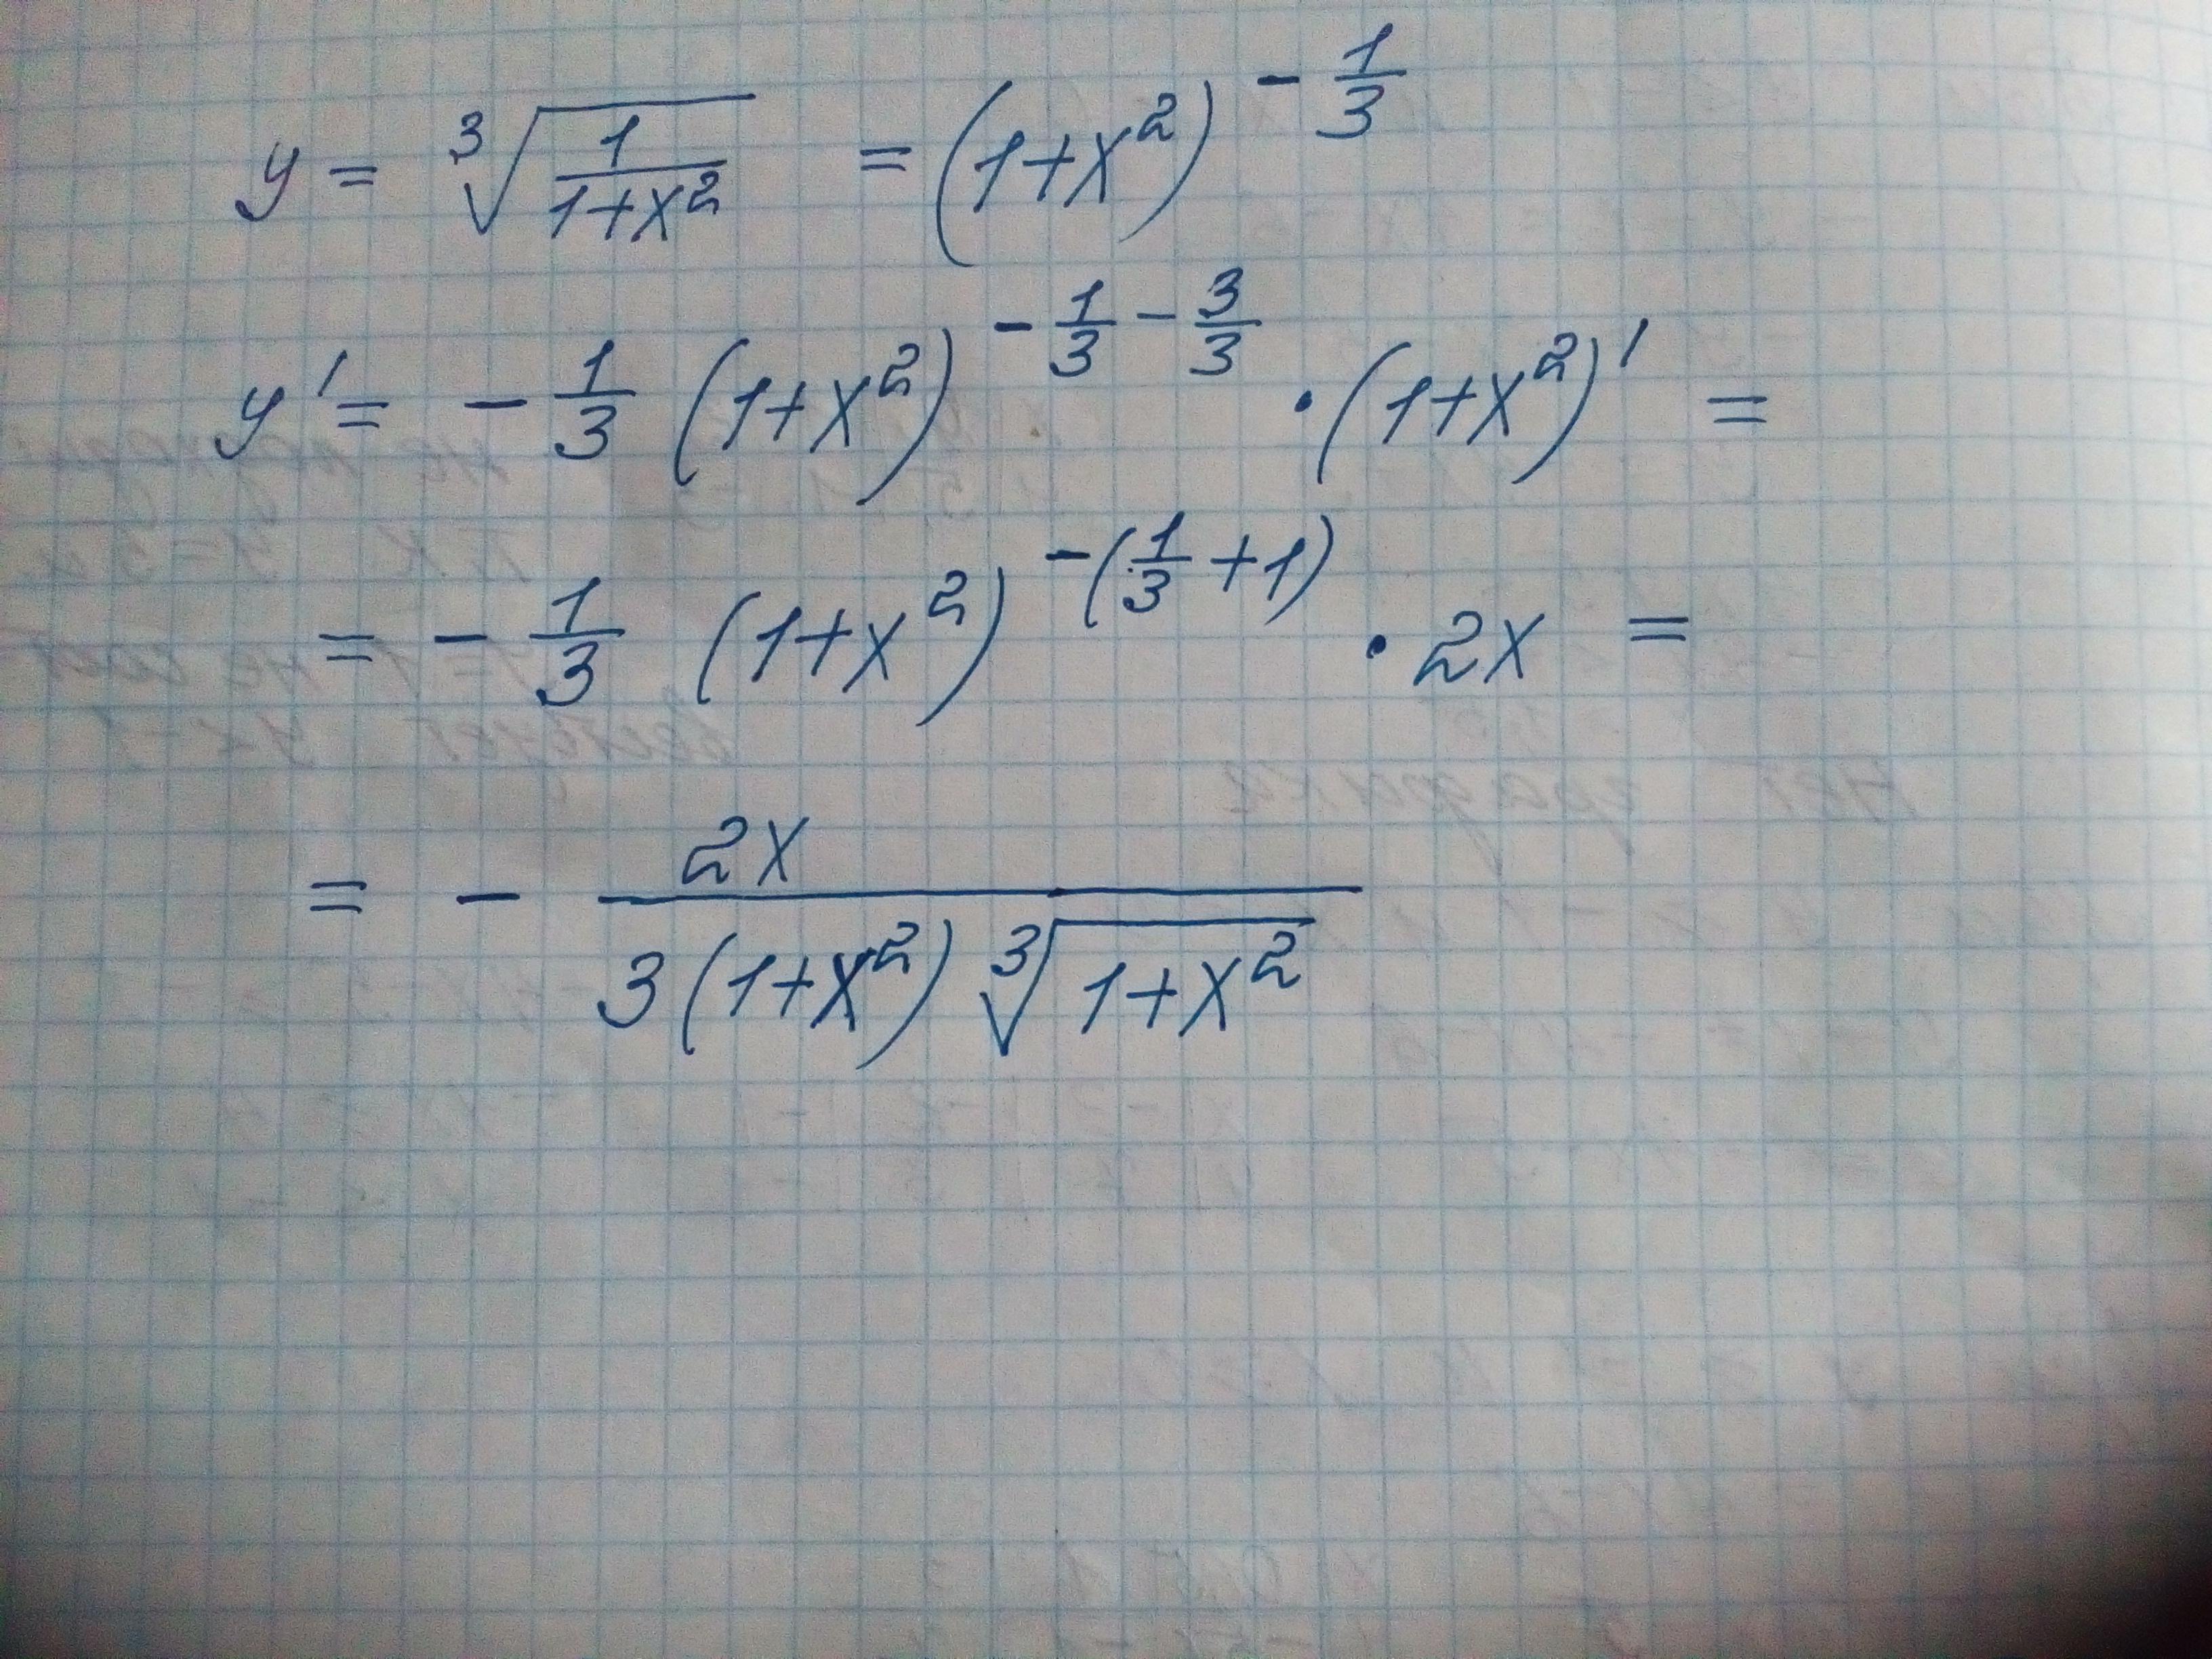 y = ∛(1/(1+x²)) = (1+x²)^(-1/3)
y' = -1/3 (1+x²)^(-1/3 - 3/3) · (1+x²)' =
= -1/3 (1+x²)^(-(1/3+1)) · 2x =
= - 2x/(3(1+x²)∛(1+x²))